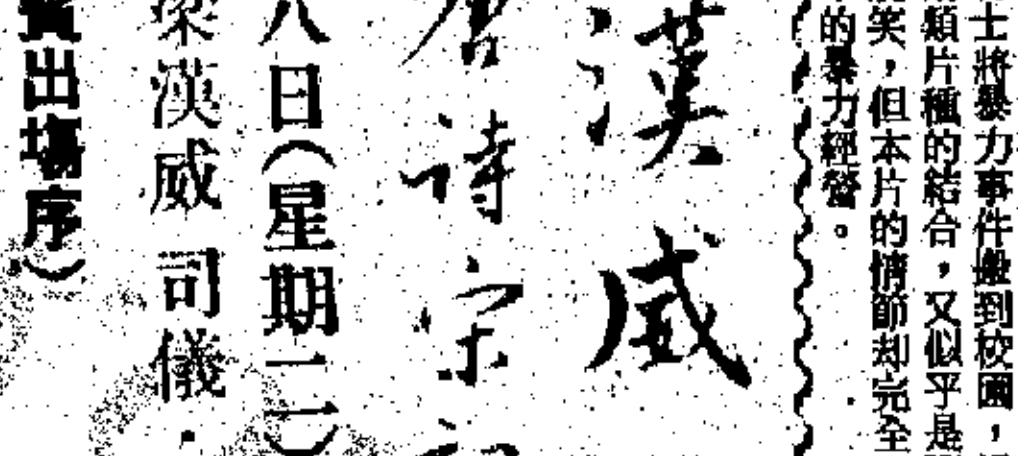 士將暴力事件搬到校園，
類片種的結合，又似乎是
笑，但本片的情節却完全
的暴力經營。
漢威
唐詩宗
八日（星期二）
梁漢威 司儀．
賓出場序）